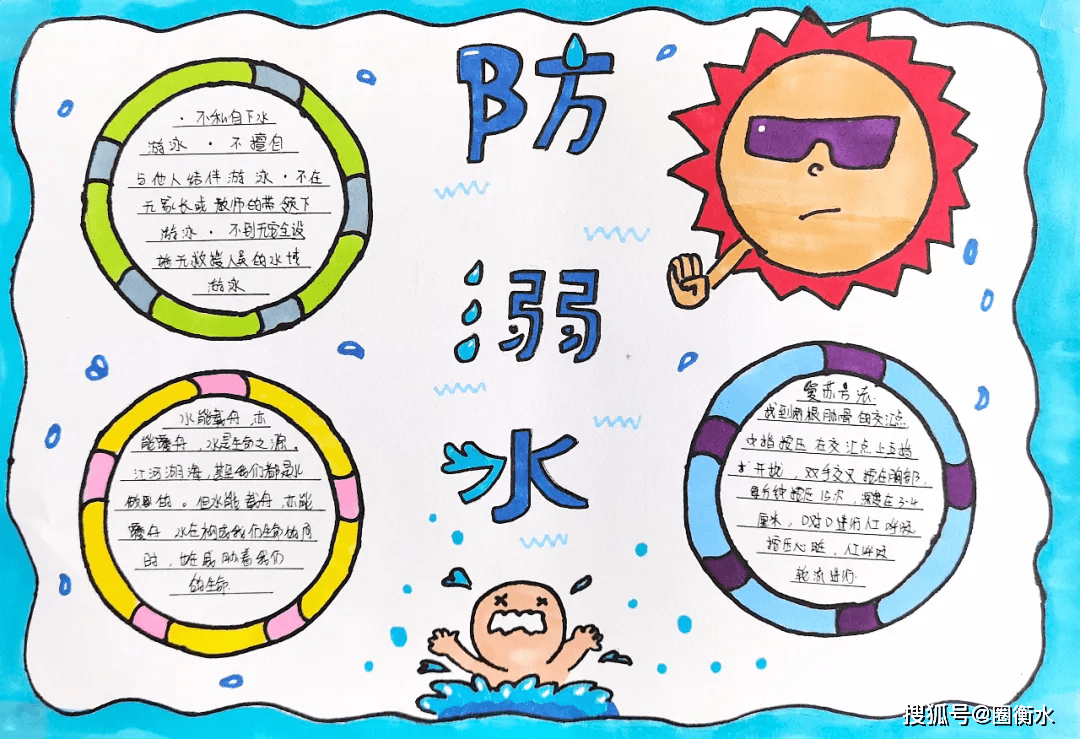 防
溺
水
· 不私自下水
游泳 · 不擅自
与他人结伴游泳 · 不在
无家长或教师的带领下
游泳 · 不到无安全设
施无救援人员的水域
游泳
水能载舟,亦
能覆舟,水是生命之源。
江河湖海,甚至我们都是水
做的。但水能载舟,亦能
覆舟 水在构成我们生命的同
时,也在威胁着我们
的生命.
复苏方法:
找到两根肋骨的交汇点
中指按压在交汇点上五指
扩开找,双手交叉按在胸部,
每分钟按压15次,深度在3-4
厘米,口对口进行人工呼吸
按压心脏,人工呼吸
轮流进行.
搜狐号@圈衡水